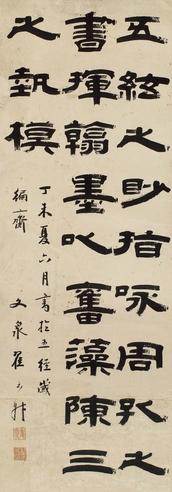 五絃之眇指咏周孔之
書揮翰墨以奮藻陳三
之軌模
丁未夏六月書於五經歲
徧齋
文泉翟云升